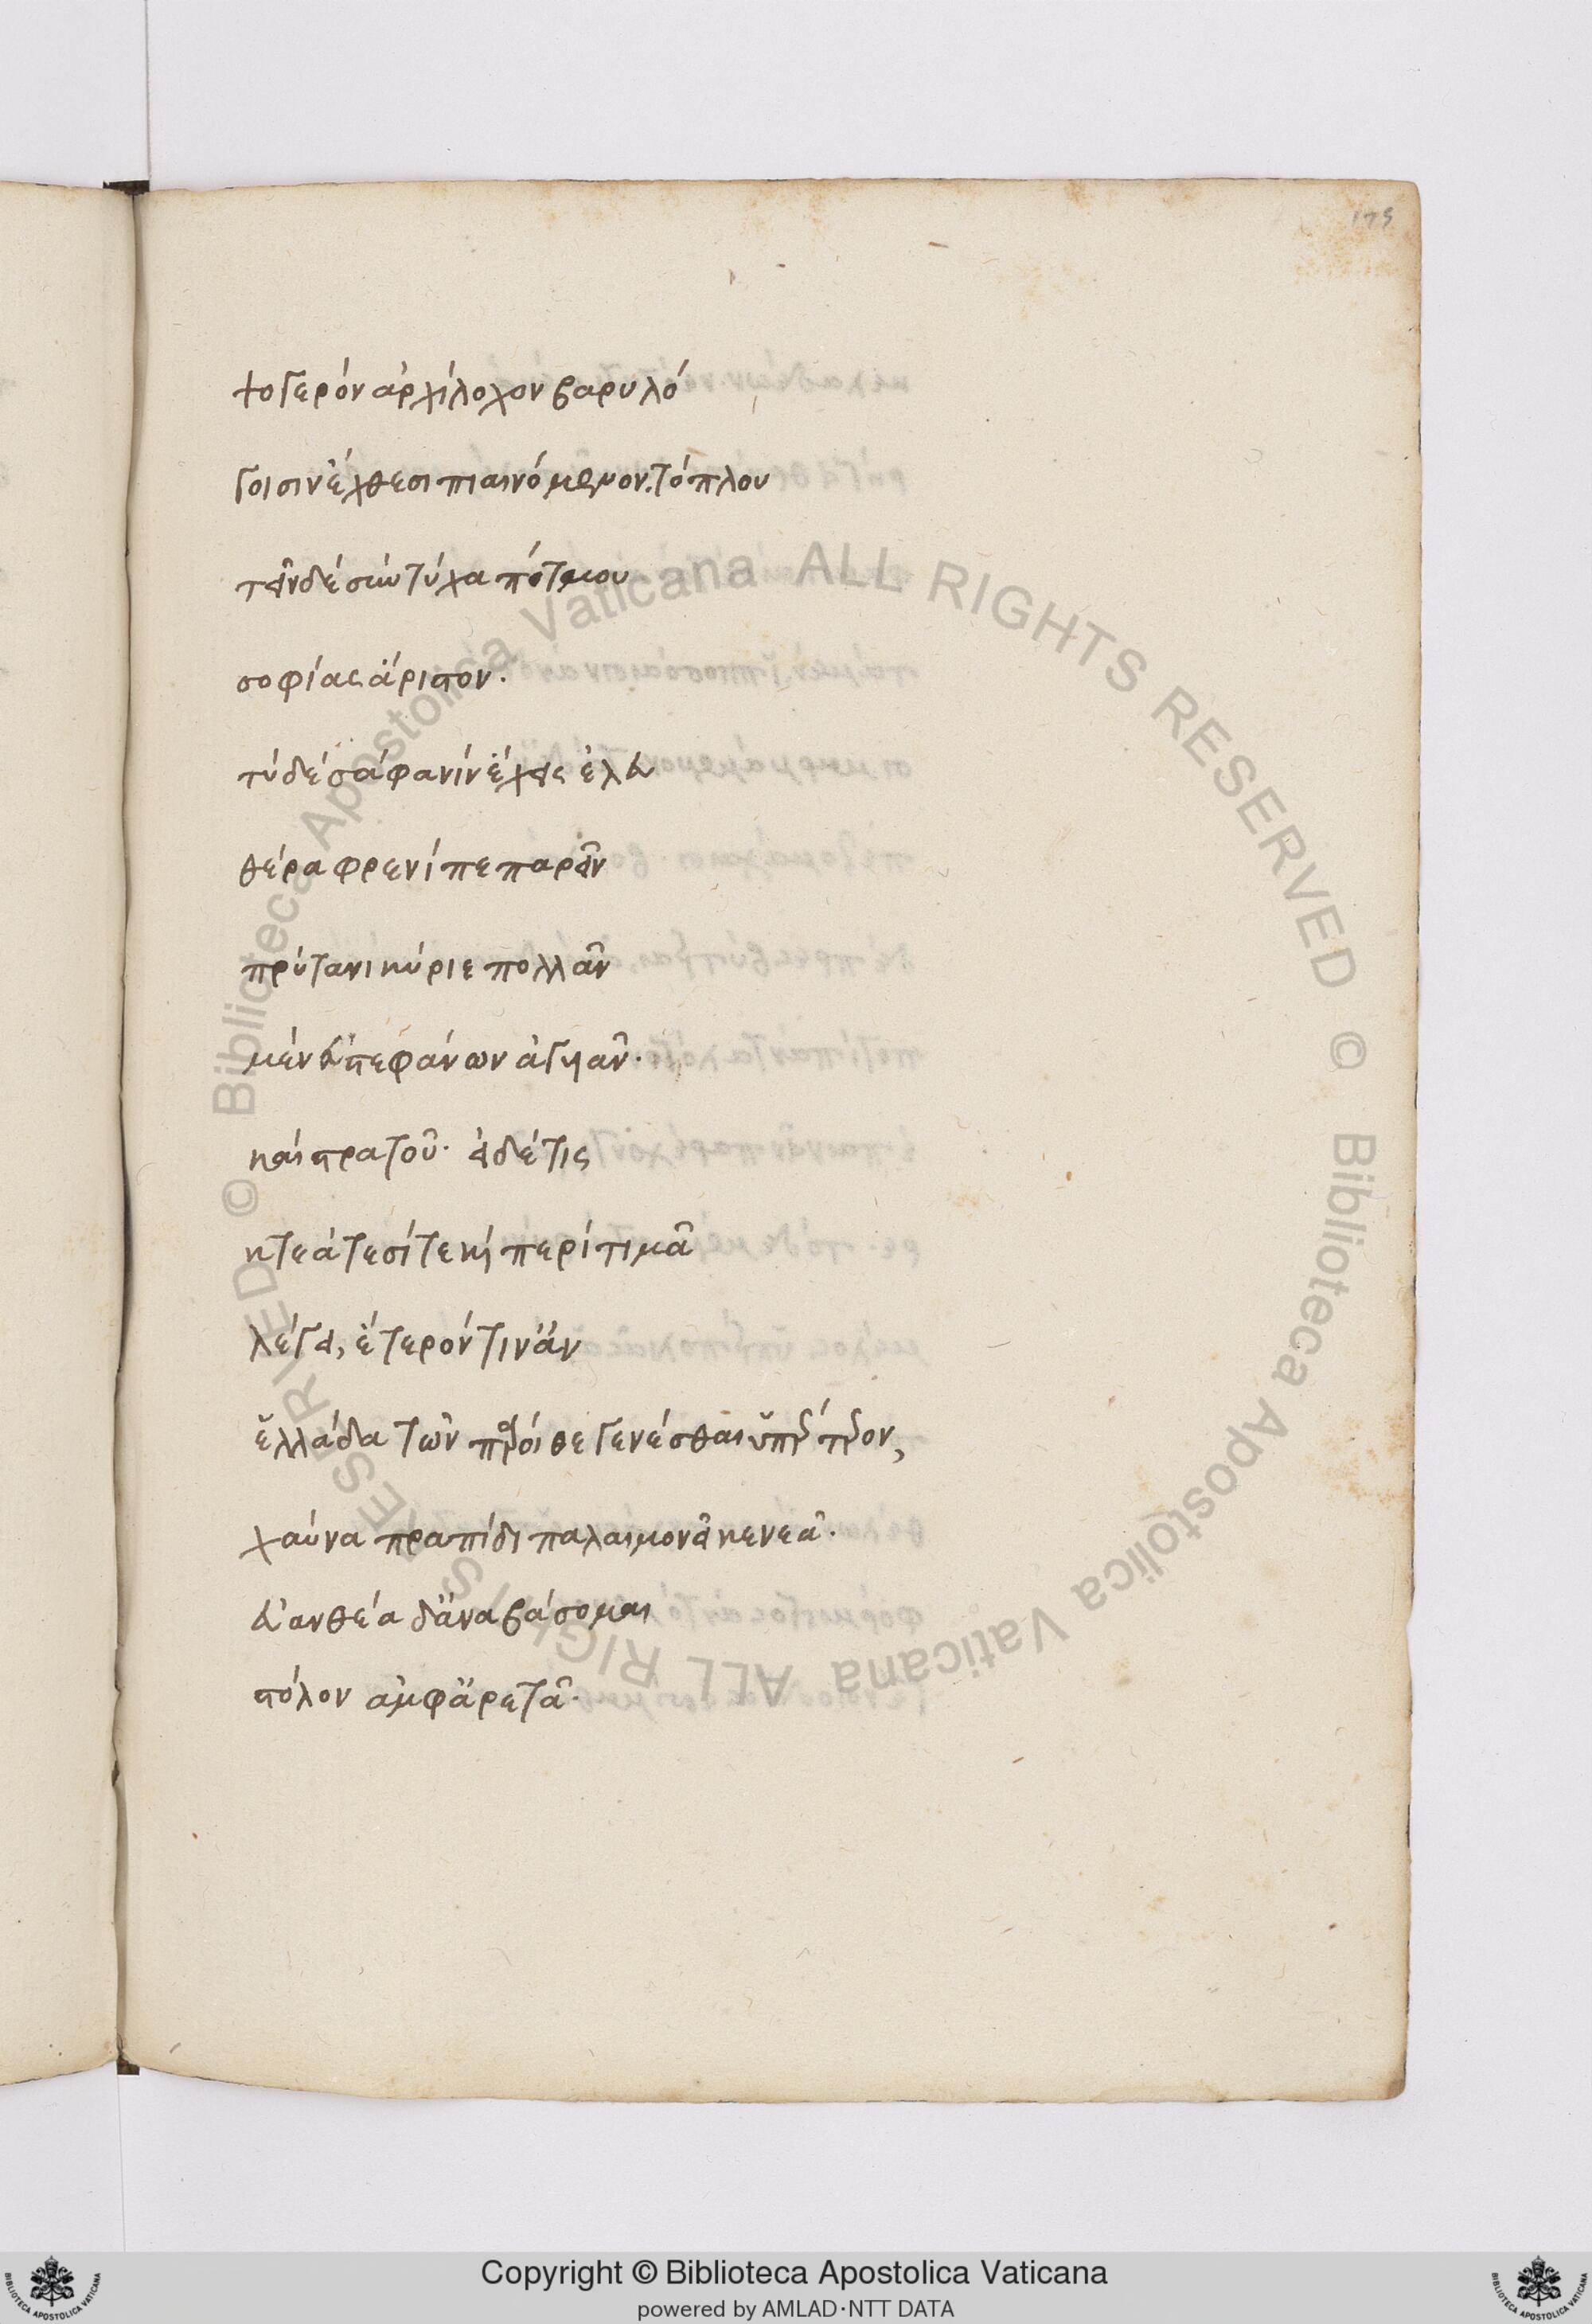 175
ψογερὸν ἀρχίλοχον βαρυλό
γοισιν ἔχθεσι πιαινόμενον. τὸ πλου
τεῖν δὲ σὺν τύχα πότμου
σοφίας ἄριστον.
τὺ δὲ σάφα νὶν ἔχεις ἐλευ
θέρα φρενὶ πεπαρεῖν
πρύτανι κύριε πολλᾶν
μὲν εὐστεφάνων ἀγυιᾶν.
καὶ στρατοῦ. εἰ δέ τις
κτεάτεσί τε καὶ περὶ τιμᾶ
λέγει, ἕτερόν τιν' ἂν
ἑλλάδα τῶν πάροιθε γενέσθαι ὑπέρτερον,
χαύνα πραπίδι παλαιμονεῖ κενεᾶ.
εὐανθέα δ' ἀναβάσομαι
στόλον ἀμφ' ἀρετᾶ.
© Biblioteca Apostolica Vaticana ALL RIGHTS RESERVED © Biblioteca Apostolica Vaticana ALL RIGHTS RESERVED
Copyright © Biblioteca Apostolica Vaticana
powered by AMLAD·NTT DATA
BIBLIOTECA APOSTOLICA VATICANA
BIBLIOTECA APOSTOLICA VATICANA